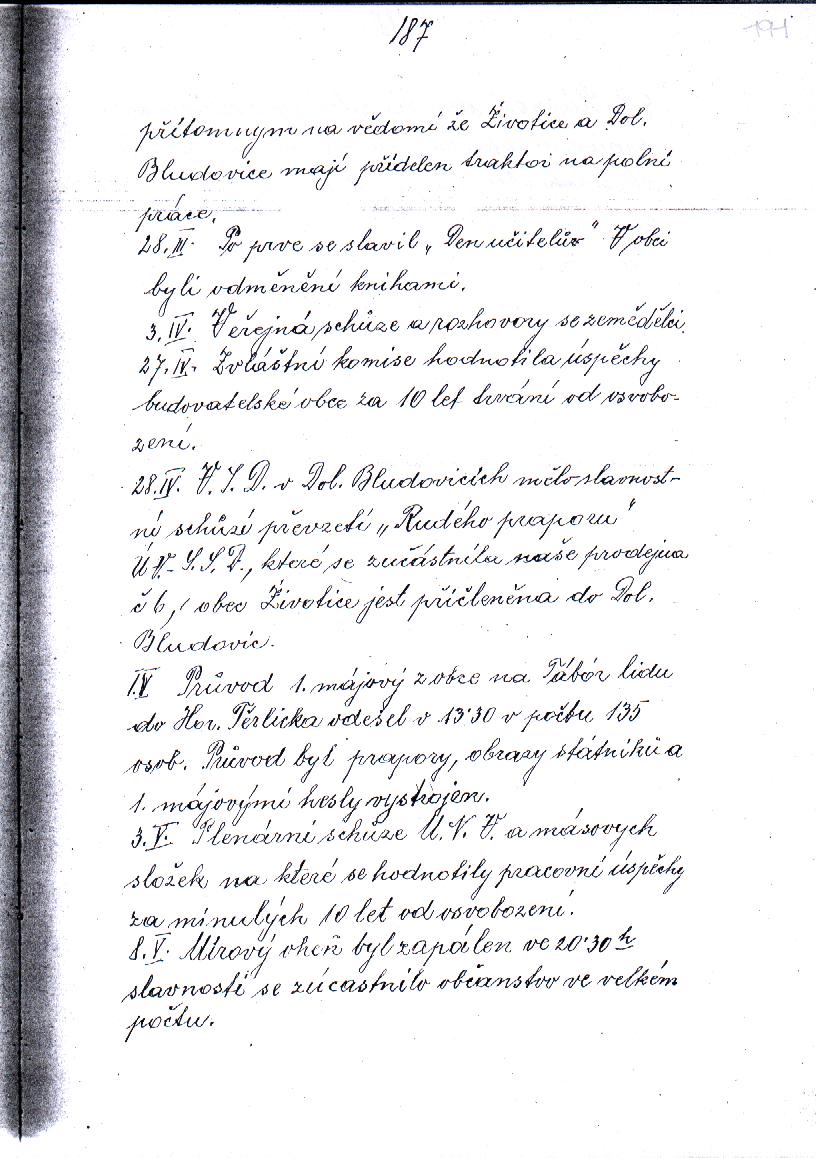 187
191
přítomnym na vědomí že Životice a Dol.
Bludovice mají přídelen traktor na polní
práce.
28. III. Po prve se slavil „Den učitelův" V obci
byli odměnění knihami.
3. IV. Veřejná schůze a rozhovory se zemědělci.
27. IV. Zvláštní komise hodnotila úspěchy
budovatelské obce za 10 let trvání od osvobo-
zení.
28. IV. V. S. D. v Dol. Bludovicích mělo slavnost-
ní schůzi převzetí „Rudého praporu"
ÚV. S. S. D., které se zučástnila naše prodejna
č 6, obec Životice jest přičleněna do Dol.
Bludovic.
1.V Průvod 1. májový z obce na Tábór lidu
do Hor. Těrlicka odešel v 13·30 v počtu 135
osob. Průvod byl prapory, obrazy státníků a
1. májovými hesly vystrojen.
3. V. Plenární schůze M. N. V. a másovych
složek na které se hodnotily pracovní úspěchy
za minulých 10 let od osvobození.
8. V. Mírový oheň byl zapálen ve 20·30 h
slavnosti se zúcastnilo občanstvo ve velkém
počtu.